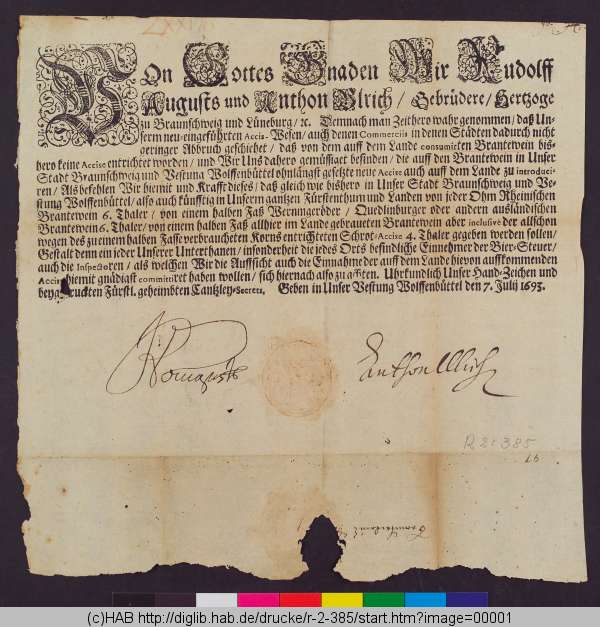 Von Gottes Gnaden Wir Rudolff
Augusts und Anthon Ulrich / Gebrüdere / Hertzoge
zu Braunschweig und Lüneburg / ꝛc. Demnach man Zeithero wahrgenommen / daß Un-
serm neu-eingeführten Accis-Wesen / auch denen Commerciis in denen Städten dadurch nicht
geringer Abbruch geschiehet / daß von dem auff dem Lande consumirten Brantewein bis-
hero keine Accise entrichtet worden / und Wir Uns dahero gemüssiget befinden / die auff den Brantewein in Unser
Stadt Braunschweig und Vestung Wolffenbüttel ohnlängst gesetzte neue Accise auch auff dem Lande zu introduci-
ren / Als befehlen Wir hiemit und Krafft dieses / daß gleich wie bishero in Unser Stadt Braunschweig und Ve-
stung Wolffenbüttel / also auch künfftig in Unserm gantzen Fürstenthum und Landen von jeder Ohm Rheinischen
Brantewein 6. Thaler / von einem halben Faß Werningeröder / Quedlinburger oder andern ausländischen
Brantewein 6. Thaler / von einem halben Faß allhier im Lande gebraueten Brantewein aber inclusivè der allschon
wegen des zu einem halben Fasse verbraucheten Korns entrichteten Schrot-Accise 4. Thaler gegeben werden sollen /
Gestalt denn ein jeder Unserer Unterthanen / insonderheit die jedes Orts befindliche Einnehmer der Bier-Steuer /
auch die Inspectoren / als welchen Wir die Auffsicht auch die Einnahme der auff dem Lande hievon auffkommenden
Accise hiemit gnädigst committiret haben wollen / sich hiernach also zu achten. Uhrkundlich Unser Hand-Zeichen und
beygedruckten Fürstl. geheimbten Cantzley-Secrets. Geben in Unser Vestung Wolffenbüttel den 7. Julij 1693.
Anthon Ulrich
R 2: 385
(c)HAB http://diglib.hab.de/drucke/r-2-385/start.htm?image=00001